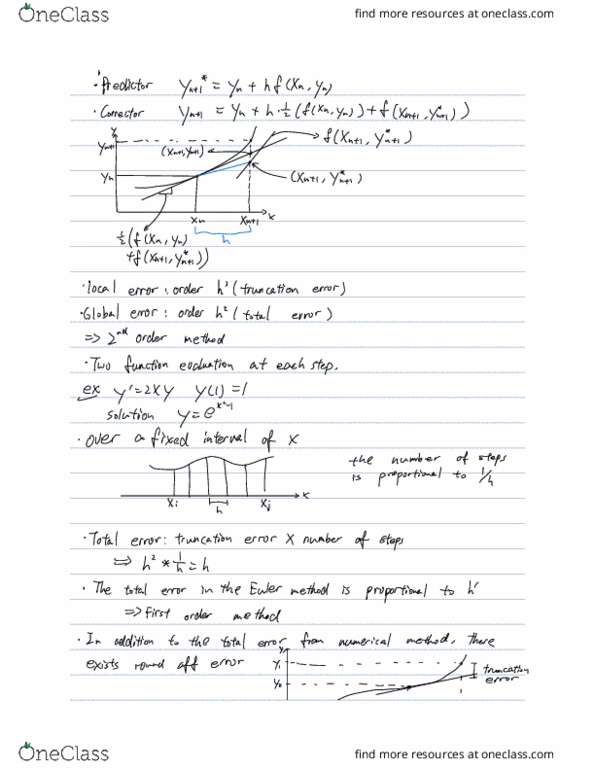 OneClass
find more resources at oneclass.com
· Predictor y*ₙ₊₁ = yₙ + h f(xₙ, yₙ)
· Corrector yₙ₊₁ = yₙ + h·½(f(xₙ, yₙ) + f(xₙ₊₁, y*ₙ₊₁))
y
f(xₙ₊₁, y*ₙ₊₁)
yₙ₊₁
(xₙ₊₁, yₙ₊₁)
yₙ
(xₙ₊₁, y*ₙ₊₁)
xₙ xₙ₊₁ x
h
½(f(xₙ, yₙ)
+f(xₙ₊₁, y*ₙ₊₁))
· local error : order h³ (truncation error)
· Global error : order h² (total error)
=> 2nd order method
· Two function evaluation at each step.
ex y' = 2xy y(1) = 1
solution y = e^(x²-1)
· over a fixed interval of x
the number of steps
is proportional to 1/h
xᵢ h xⱼ x
· Total error: truncation error x number of steps
=> h² * 1/h = h
· The total error in the Euler method is proportional to h¹
=> First order method
· In addition to the total error from numerical method, there
exists round off error
y
y₁
y₀
truncation
error
OneClass
find more resources at oneclass.com